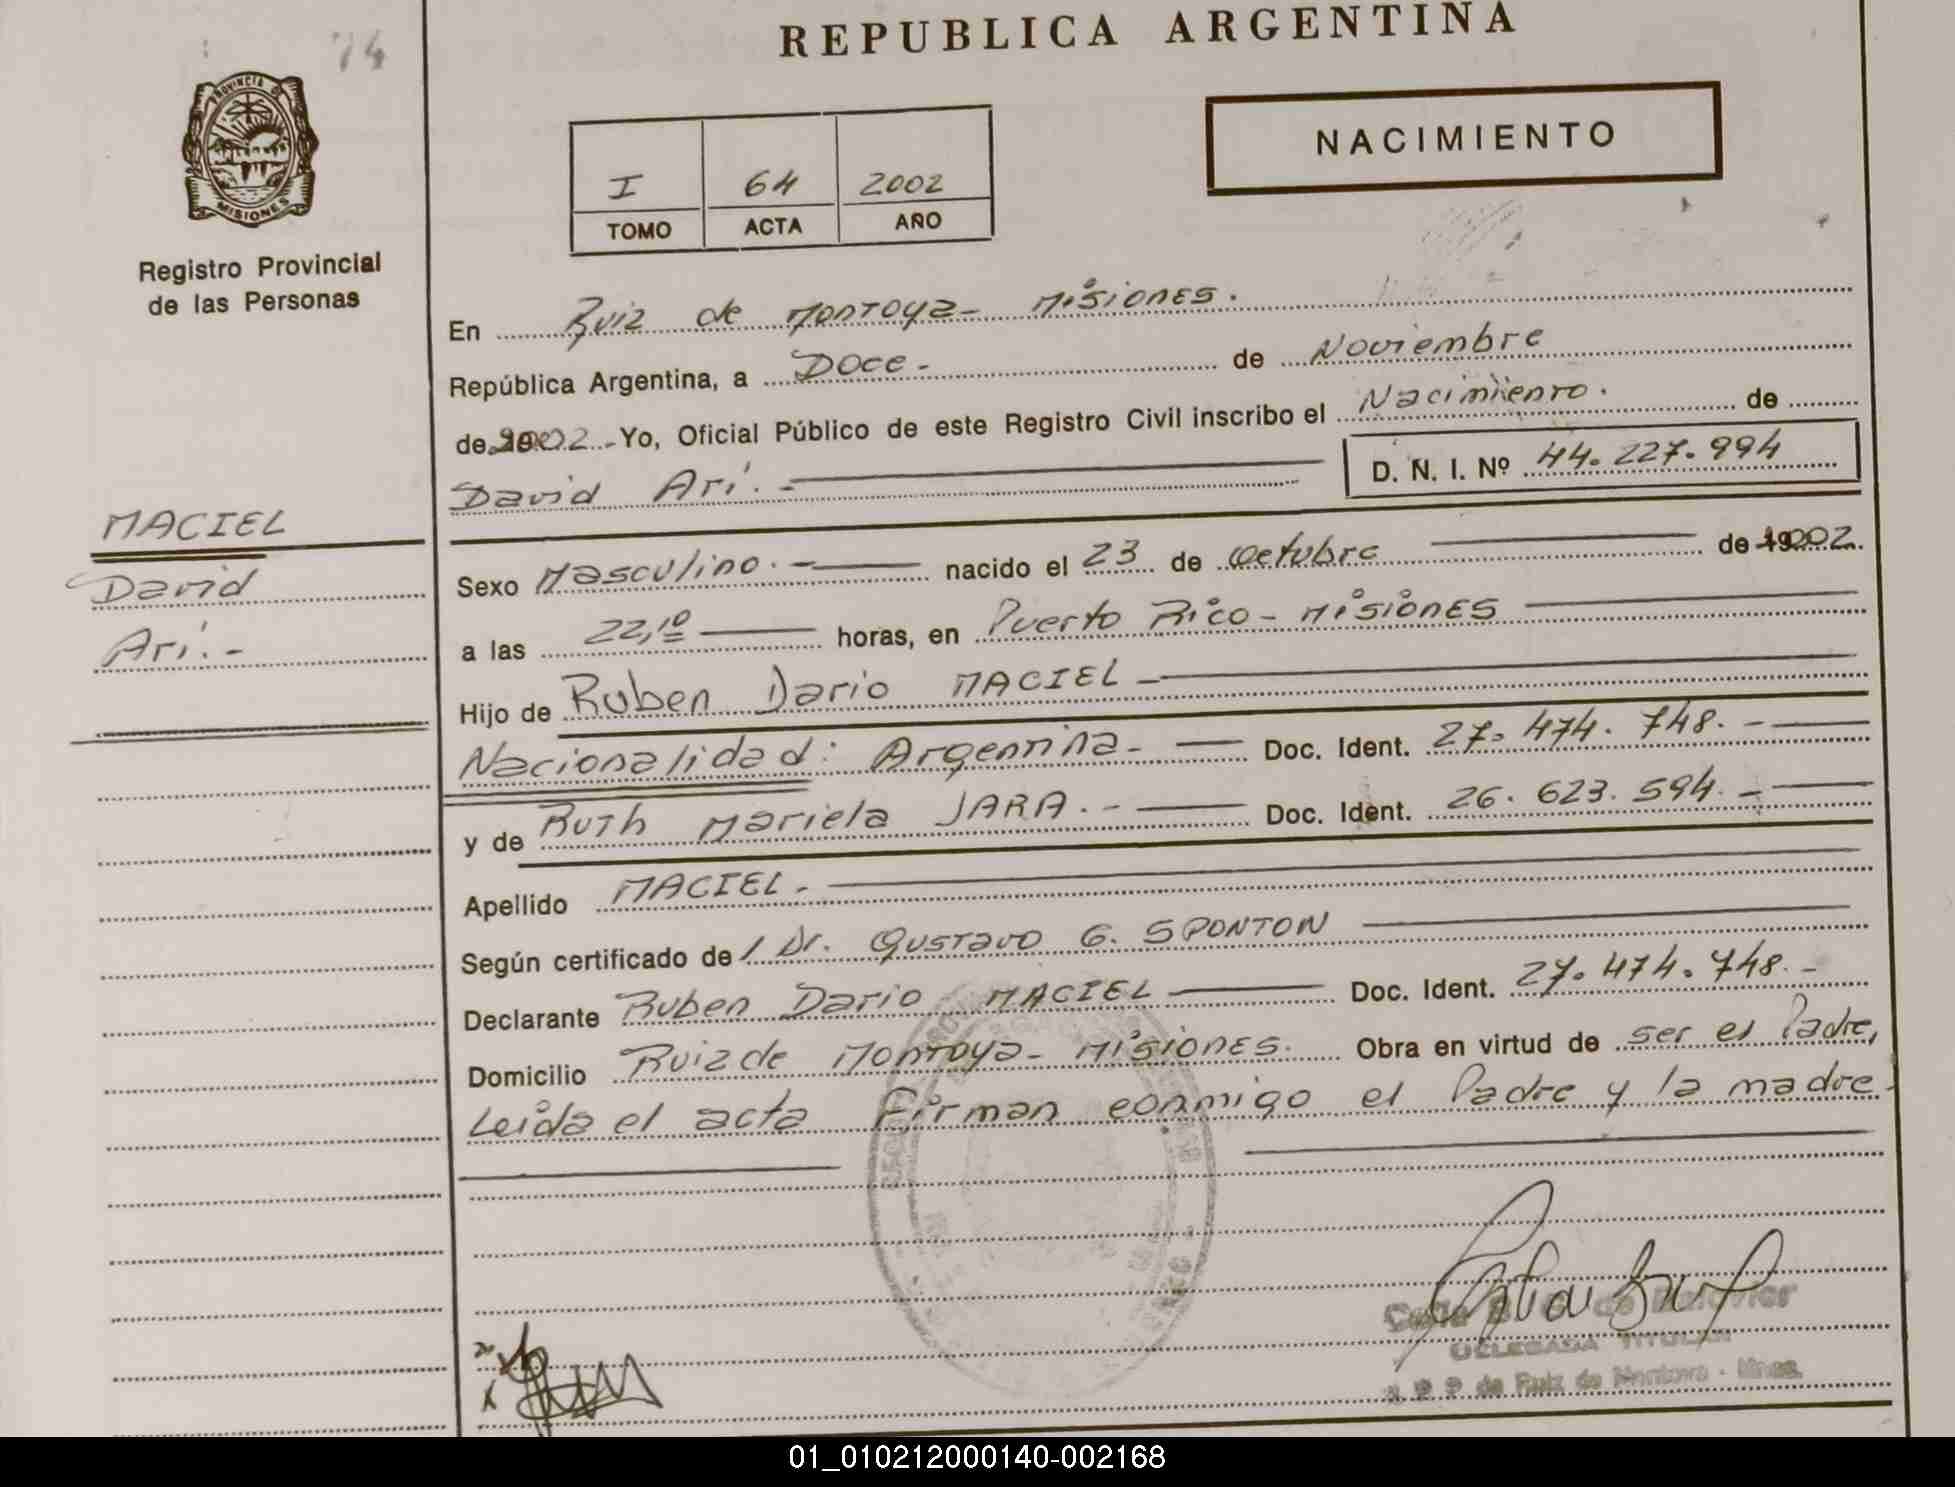 REPUBLICA ARGENTINA
74
PROVINCIA D
MISIONES
Registro Provincial
de las Personas
NACIMIENTO
I 64 2002
TOMO ACTA AÑO
En Ruiz de Montoya - Misiones.
República Argentina, a Doce - de Noviembre
de 2002 - Yo, Oficial Público de este Registro Civil inscribo el Nacimiento. de
David Ari. - D. N. I. Nº 44.227.994
MACIEL
David
Ari. -
Sexo Masculino. - nacido el 23 de octubre de 2002.
a las 22,10 horas, en Puerto Rico - Misiones
Hijo de Ruben Dario MACIEL -
Nacionalidad: Argentina - Doc. Ident. 27.474.748. -
y de Ruth Mariela JARA. - Doc. Ident. 26.623.594. -
Apellido MACIEL. -
Según certificado de / Dr. Gustavo G. SPONTON
Declarante Ruben Dario MACIEL Doc. Ident. 27.474.748. -
Domicilio Ruiz de Montoya - Misiones. Obra en virtud de ser el Padre,
Leida el acta Firman conmigo el Padre y la madre -
DELEGADA TITULAR
de Ruiz de Montoya - Mnes.
01_010212000140-002168